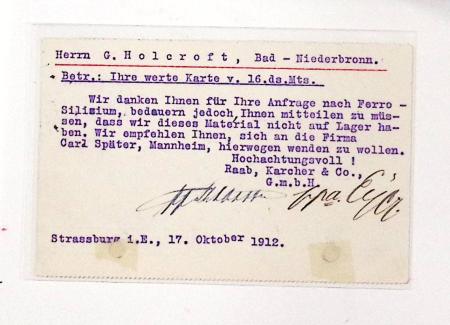 Herrn G. Holcroft, Bad - Niederbronn.
Betr.: Ihre werte Karte v. 16.ds.Mts.
Wir danken Ihnen für Ihre Anfrage nach Ferro -
Silizium, bedauern jedoch Ihnen mitteilen zu müs-
sen, dass wir dieses Material nicht auf Lager ha-
ben. Wir empfehlen Ihnen, sich an die Firma
Carl Später, Mannheim, hierwegen wenden zu wollen.
Hochachtungsvoll !
Raab, Karcher & Co.,
G.m.b.H.
ppa.
Strassburg i.E., 17. Oktober 1912.